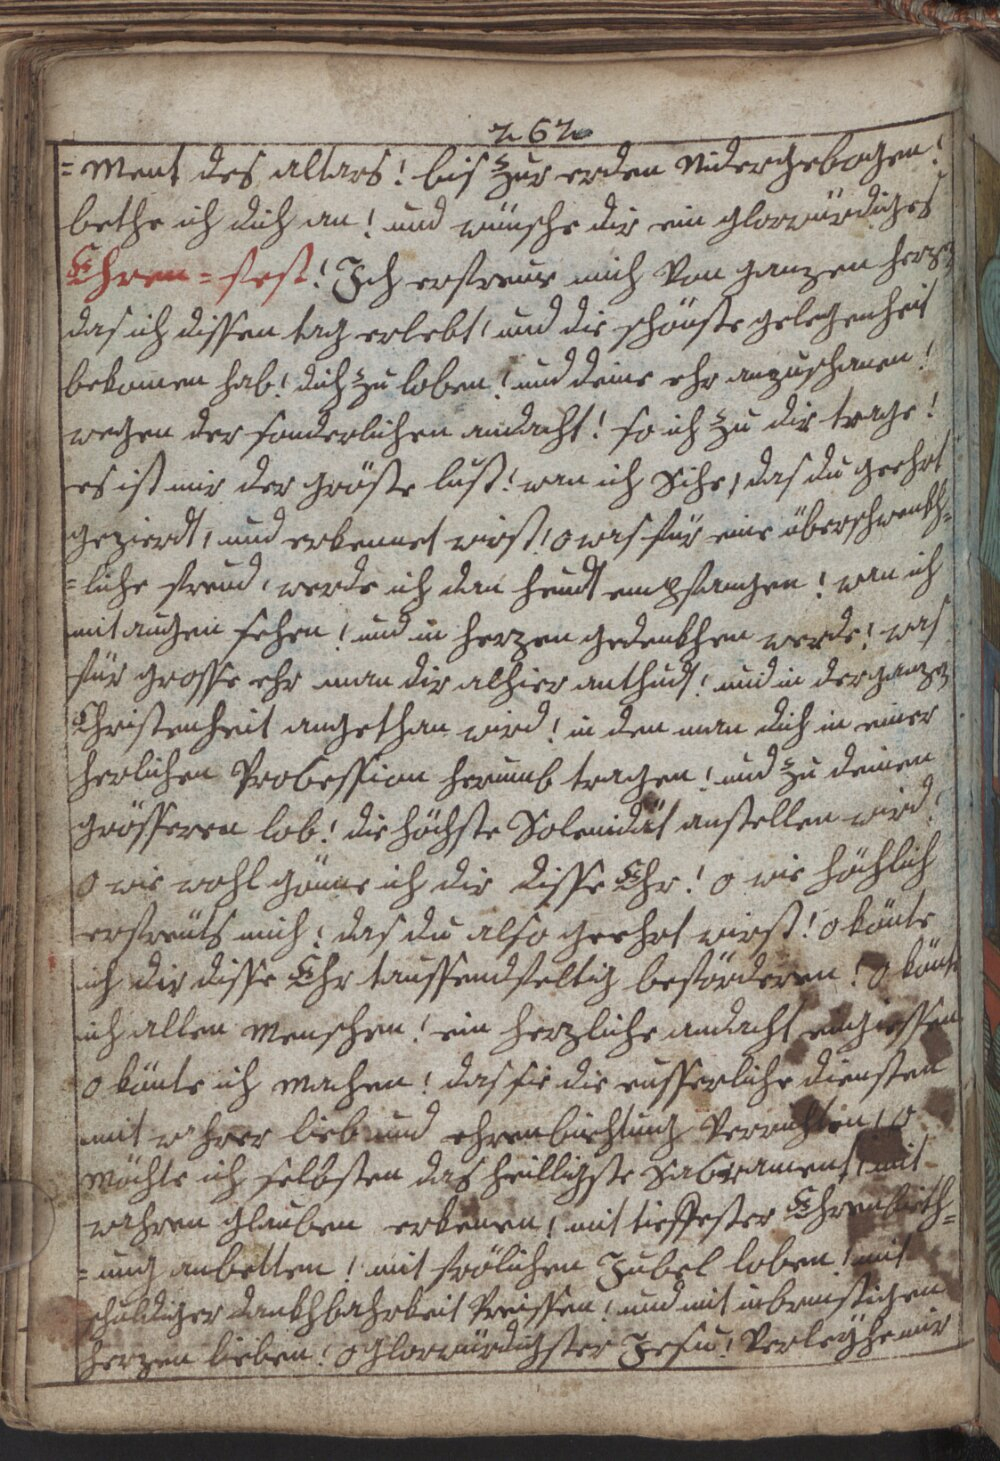 262
=ment des altars! bis zur erden Nidergebogen!
bethe ich dich an! und wünsche dir ein glorwürdiges
Ehren=fest! Ich erfreue mich Von ganzen herzen
das ich dissen tag erlebt, und die schönste gelegenheit
bekomen hab! dich zu loben! und deine ehr anzuschauen!
wegen der sonderlichen andacht! so ich zu dir trage!
es ist mir der gröste lust! wan ich Sihe, das du geehrt
geziert, und erkennet wirst, o was für eine überschwenkh=
=liche freud, werde ich dan heudt empfangen! wan ich
mit augen sehen! und in herzen gedenkhen werde! was
für grosse ehr man dir alhier anthudt! und in der ganzen
Christenheit angethan wird! in den man dich in einer
herlichen Probession herumb tragen! und zu deinen
grösseren lob! die höchste Solenidät anstellen wird!
O wie wohl gönne ich dir disse Ehr! o wie höchlich
erfreuts mich! das du also geehrt wirst! o könte
ich dir disse Ehr taussendfeltig beförderen! O könte
ich allen Menschen! ein herzliche andacht eingiessen
O könte ich machen! das sie die eusserliche diensten
mit wahrer lieb und ehrenbiehtung Verrichten, O
möchte ich selbsten das heilligste Sabrament, mit
wahren glauben erkenen, mit tieffester Ehrenbieth=
=ung anbetten! mit frölichen Jubel loben! mit
schuldiger dankhbahrkeit Preissen! und mit inbrinstigen
herzen lieben! O glorwürdigster Jesu! Verleyhe mir